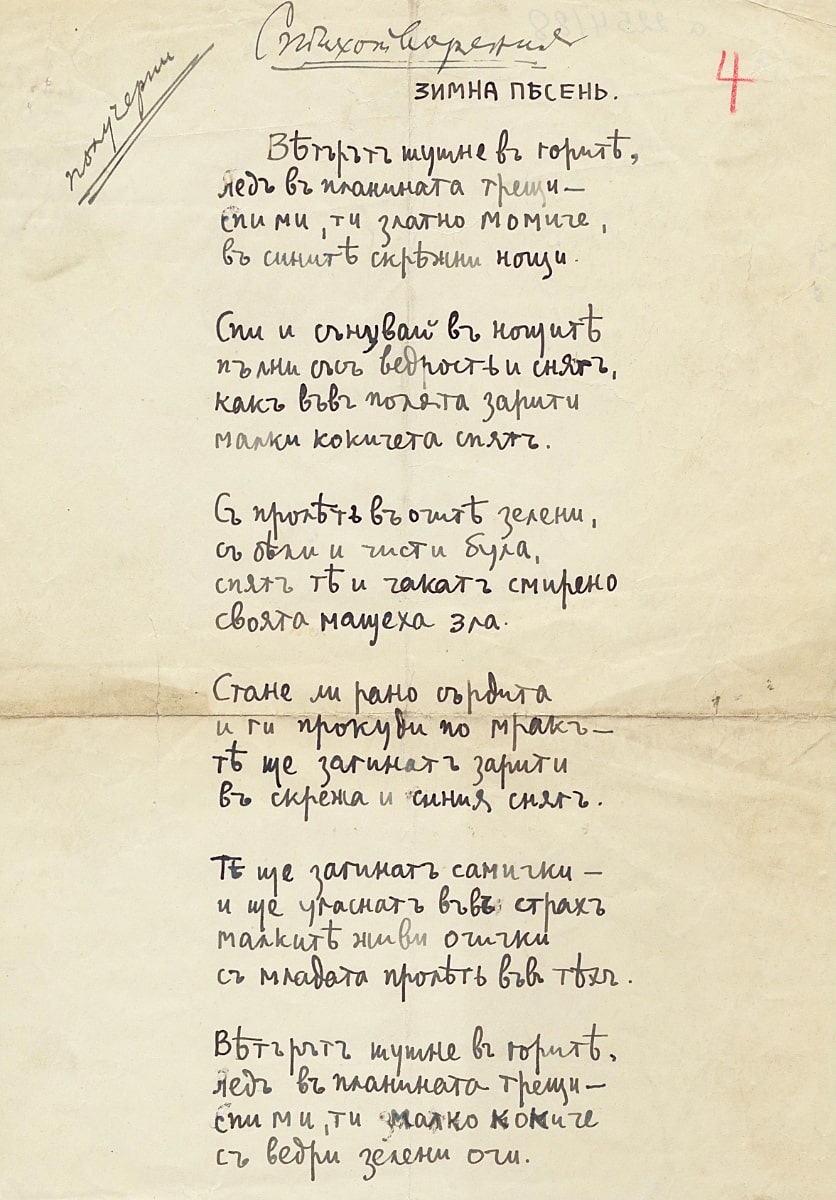 Стихотворения
получерни
4
ЗИМНА ПѢСЕНЬ.
Вѣтърътъ шушне въ горитѣ,
ледъ въ планината трещи—
спи ми, ти златно момиче,
въ синитѣ скрѣжни нощи.
Спи и сънувай въ нощитѣ
пълни съсъ ведрость и снягъ,
какъ във полята зарити
малки кокичета спятъ.
Съ пролѣть въ очитѣ зелени,
съ бѣли и чисти була,
спятъ тѣ и чакатъ смирено
своята мащеха зла.
Стане ли рано сърдита
и ги прокуди по мракъ—
тѣ ще загинатъ зарити
въ скрежа и синия снягъ.
Тѣ ще загинатъ самички—
и ще угаснатъ във страхъ
малкитѣ живи очички
съ младата пролѣть във тѣхъ.
Вѣтърътъ шушне въ горитѣ,
ледъ въ планината трещи—
спи ми, ти малко кокиче
съ ведри зелени очи.